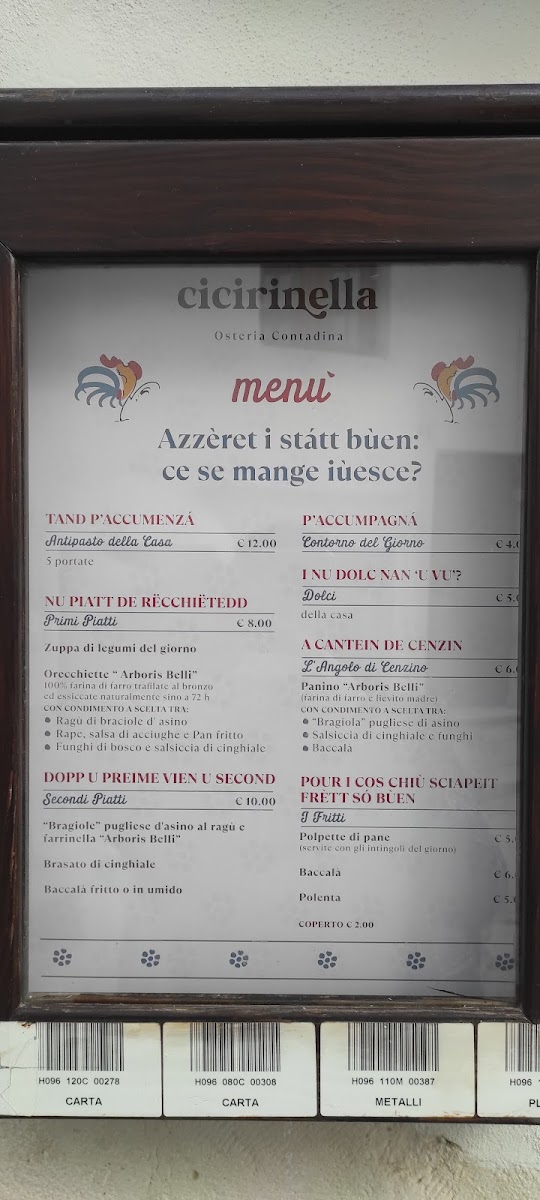 cicirinella
Osteria Contadina
menù
Azzèret i státt bùen:
ce se mange iùesce?
TAND P'ACCUMENZÁ
Antipasto della Casa € 12.00
5 portate
NU PIATT DE RËCCHIËTEDD
Primi Piatti € 8.00
Zuppa di legumi del giorno
Orecchiette “ Arboris Belli”
100% farina di farro trafilate al bronzo
ed essiccate naturalmente sino a 72 h
CON CONDIMENTO A SCELTA TRA:
Ragù di braciole d' asino
Rape, salsa di acciughe e Pan fritto
Funghi di bosco e salsiccia di cinghiale
DOPP U PREIME VIEN U SECOND
Secondi Piatti € 10.00
“Bragiole” pugliese d'asino al ragù e
farrinella “Arboris Belli”
Brasato di cinghiale
Baccalà fritto o in umido
P'ACCUMPAGNÁ
Contorno del Giorno € 4.0
I NU DOLC NAN ‘U VU’?
Dolci € 5.0
della casa
A CANTEIN DE CENZIN
L'Angolo di Cenzino € 6.0
Panino “Arboris Belli”
(farina di farro e lievito madre)
CON CONDIMENTO A SCELTA TRA:
“Bragiola” pugliese di asino
Salsiccia di cinghiale e funghi
Baccalà
POUR I COS CHIÙ SCIAPEIT
FRÈTT SÒ BÙEN
I Fritti
Polpette di pane € 5.
(servite con gli intingoli del giorno)
Baccalà € 6.
Polenta € 5.
COPERTO € 2.00
H096 120C 00278
CARTA
H096 080C 00308
CARTA
H096 110M 00387
METALLI
H096
PL